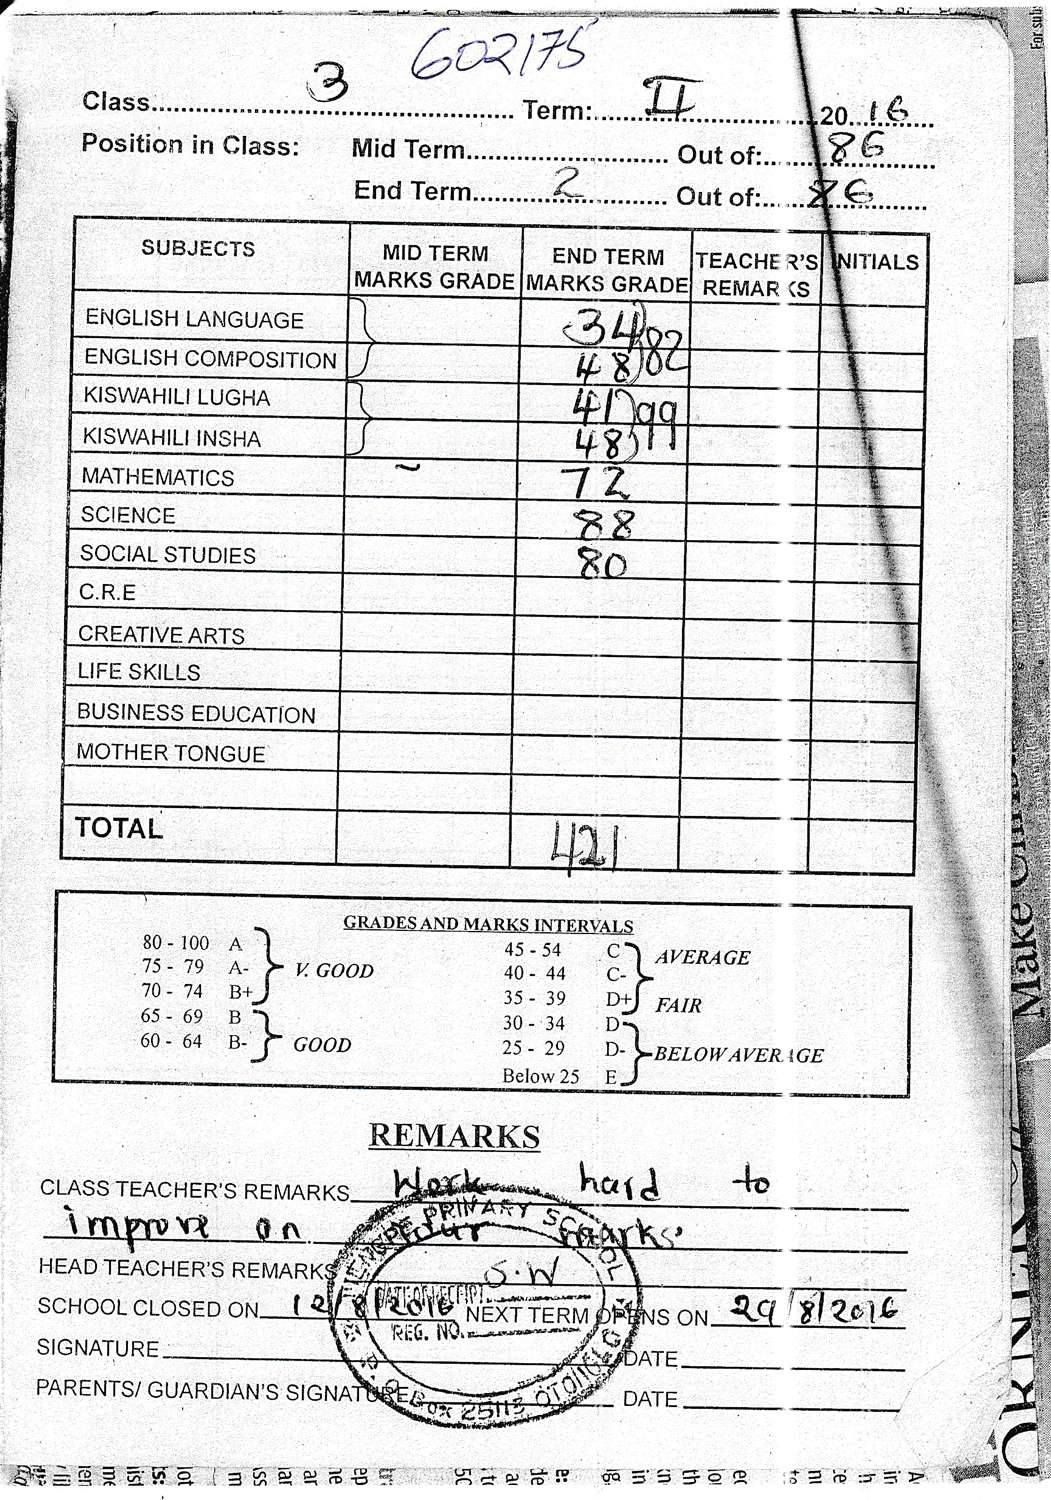 602175
Class 3 Term: II 2016
Position in Class: Mid Term Out of: 86
End Term 2 Out of: 86
SUBJECTS MID TERM MARKS GRADE END TERM MARKS GRADE TEACHER'S REMARKS INITIALS
ENGLISH LANGUAGE 34
ENGLISH COMPOSITION 48 82
KISWAHILI LUGHA 41
KISWAHILI INSHA 48 99
MATHEMATICS ~ 72
SCIENCE 88
SOCIAL STUDIES 80
C.R.E
CREATIVE ARTS
LIFE SKILLS
BUSINESS EDUCATION
MOTHER TONGUE
TOTAL 421
GRADES AND MARKS INTERVALS
80 - 100 A
75 - 79 A- V. GOOD
70 - 74 B+
65 - 69 B
60 - 64 B- GOOD
45 - 54 C AVERAGE
40 - 44 C-
35 - 39 D+ FAIR
30 - 34 D
25 - 29 D- BELOW AVERAGE
Below 25 E
REMARKS
CLASS TEACHER'S REMARKS Work hard to
improve on your marks
HEAD TEACHER'S REMARKS S.W
SCHOOL CLOSED ON 12/8/2016 NEXT TERM OPENS ON 29/8/2016
SIGNATURE DATE
PARENTS/ GUARDIAN'S SIGNATURE DATE
PRIMARY SCHOOL
DATE OF RECEIPT
REG. NO.
P. O. Box 25113
Make